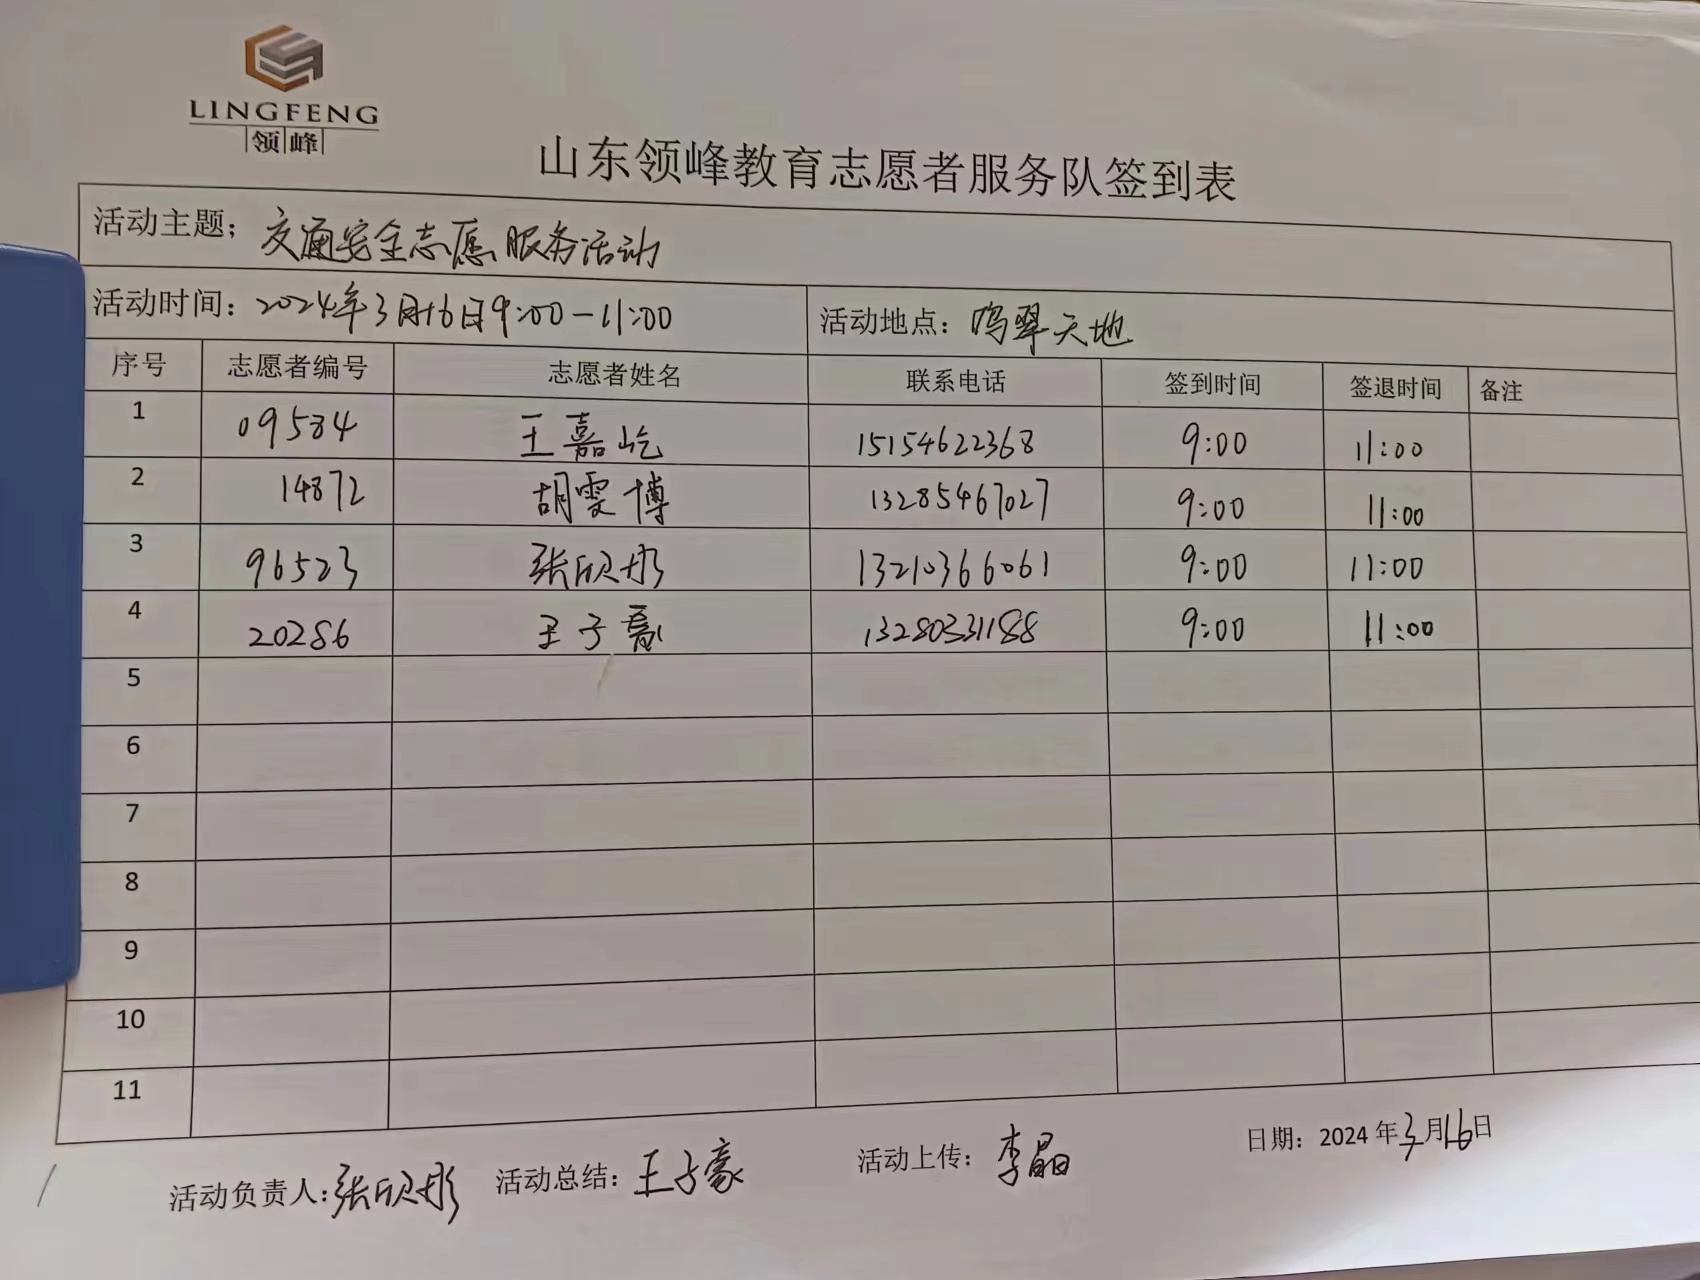 LINGFENG
领峰
山东领峰教育志愿者服务队签到表
活动主题；交通安全志愿服务活动
活动时间：2024年3月16日9:00-11:00 活动地点：鸣翠天地
序号 志愿者编号 志愿者姓名 联系电话 签到时间 签退时间 备注
1 09584 王嘉屹 15154622368 9:00 11:00
2 14872 胡雯博 13285467027 9:00 11:00
3 96523 张欣彤 13210366061 9:00 11:00
4 20286 王子 13280331188 9:00 11:00
5
6
7
8
9
10
11
活动负责人：张欣彤 活动总结：王子豪 活动上传：李晶 日期：2024年3月16日